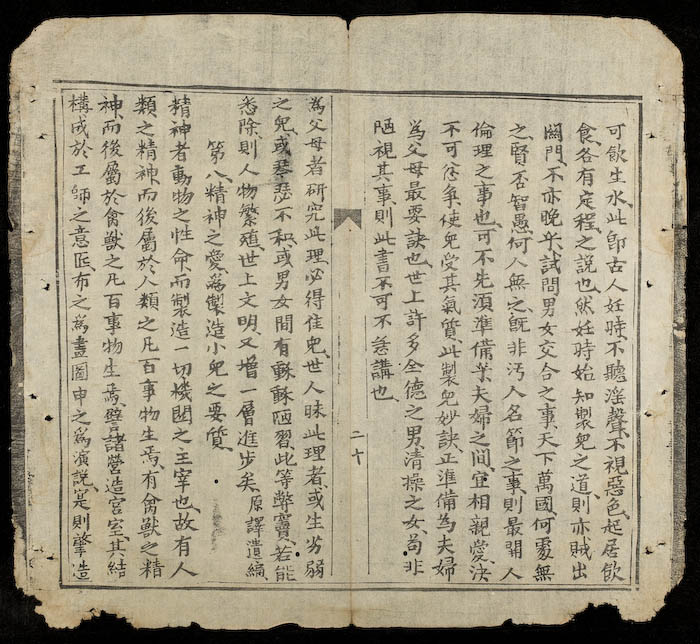 可飲生水此卽古人妊時不聽淫聲不視惡色起居飮
食各有定程之說也然妊時始知製兒之道則亦賊出
關門不亦晩乎試問男女交合之事天下萬國何處無
之賢否智愚何人無之旣非汚人名節之事則最關人
倫理之事也可不先須準備業夫婦之間宜相親愛決
不可忿爭使兒受其氣質此製兒妙訣正準備為夫婦
為父母最要訣也世上許多全德之男淸操之女苟非
陋視其事則此書不可不急講也
二十
為父母者硏究此理必得佳兒世人昧此理者或生劣弱
之兒或琴瑟不和或男女間有酥酥陋習此等弊竇若能
悉除則人物繁殖世上文明又增一層進步矣 原譯遺編
第八精神之愛為製造小兒之要質
精神者動物之性命而製造一切機關之主宰也故有人
類之精神而後屬於人類之凡百事物生焉有禽獸之精
神而後屬於禽獸之凡百事物生焉譬諸營造宮室其結
構成於工師之意匠布之為畫圖申之為演說寔則肇造